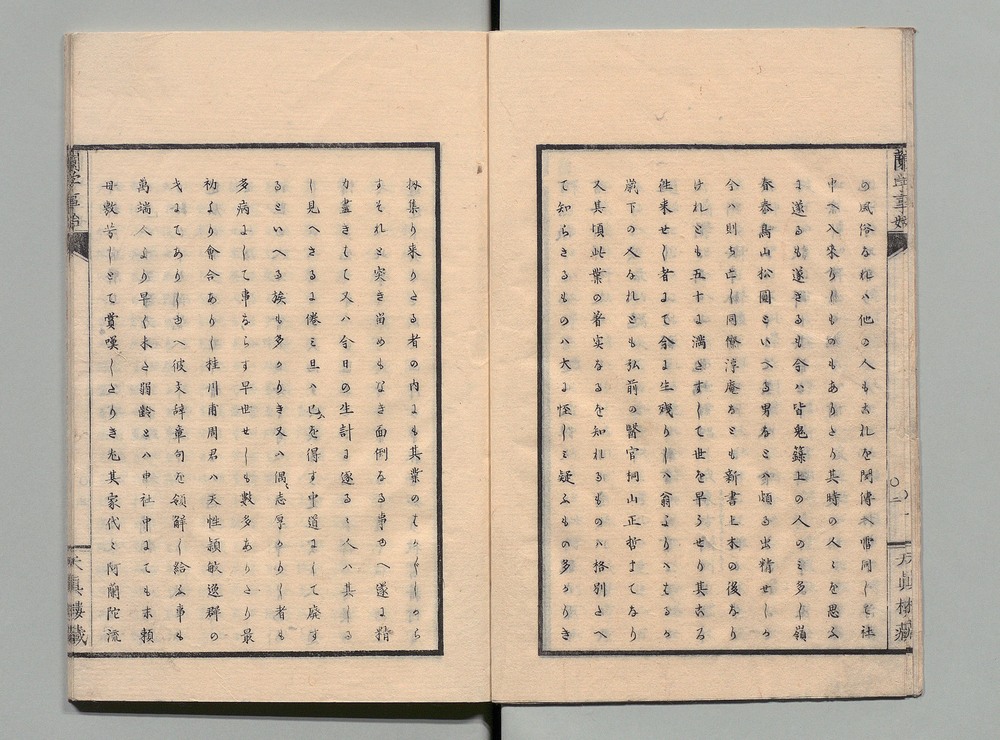 の風俗なれハ他の人も是れを聞傳へ雷同して社
中へ入來りしものもありたり其時の人々を思ふ
に遂るも遂さるも今ハ皆鬼籙上の人のミ多し嶺
春泰烏山松圓といへる男なとハ頗る出精せしか
今ハ則ち亡し同僚淳庵なとも新書上木の後なり
けれとも五十に満たすして世を早うせり其古る
徃来せし者にて今に生残りしハ翁よりハはるか
歳下の人なれとも弘前の醫官桐山正哲まてなり
又其頃此業の着実なるを知れるものハ格別さへ
て知らさるものハ大に怪しミ疑ふもの多かりき
扨集り来りたる者の内にも其業のはかしから
すそれと突き留めもなき面倒なる事ゆへ遂に精
力盡きもて又ハ今日の生計に遂るゝ人ハ其しる
し見へさるに倦ミ且ハ已を得す中道にして廃す
るといへる族も多かりき又ハ偶志厚かりし者も
多病にして事ならす早世せしも數多ありたり最
初より會合ありし桂川甫周君ハ天性頴敏逸群の
才にてありしゆへ彼文辞章句を領解し給ふ事も
萬端人より早く未た弱齢とハ申社中にても末頼
母敷芳しとて賞嘆したりき尤其家代々阿蘭陀流
蘭学事始
天真樓藏
蘭学事始
天真樓藏